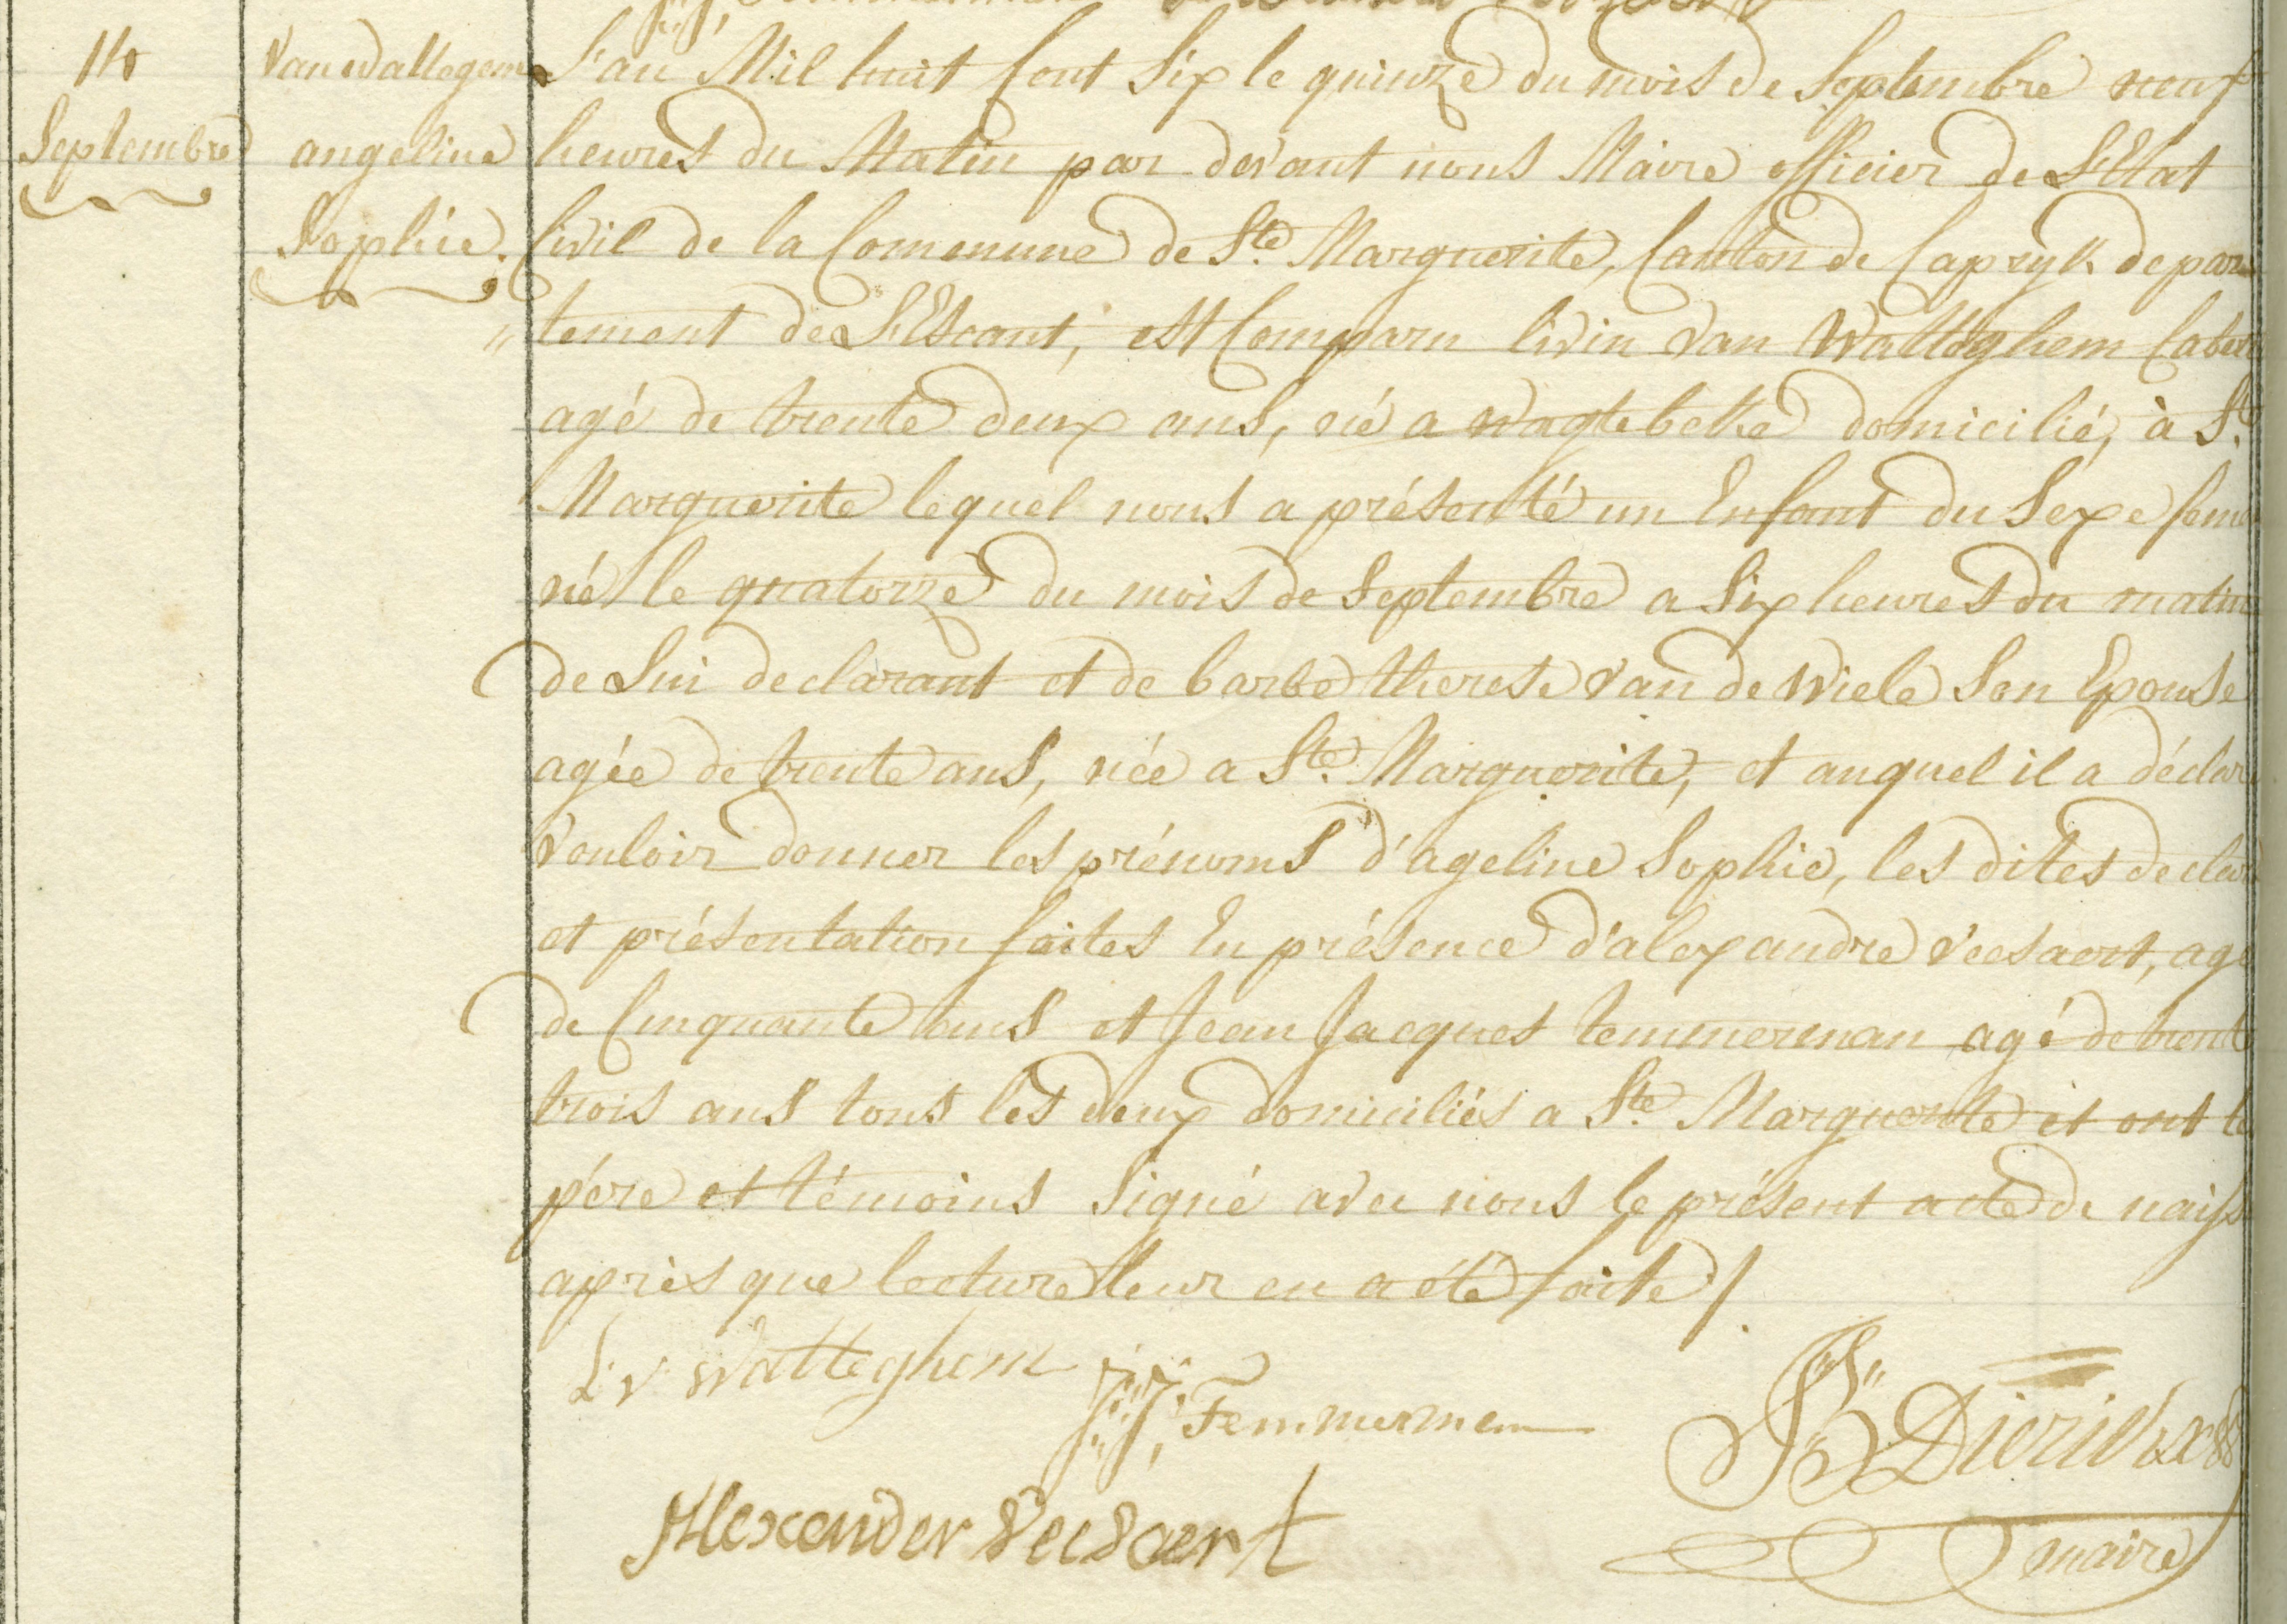 14
Septembre
Van Wallegem
angeline
Sophie.
L'an Mil huit Cent Six le quinze du mois de Septembre neuf
heures du Matin par devant nous Maire officier de L'Etat
Civil de la Commune de Ste. Marguerite, Canton de Capryk depar
"tement de L'Escaut, est Comparu livin Van Watteghem
agé de trente deux ans, né a Wagtebeke domicilié, à Ste.
Marguerite lequel nous a présenté un Enfant du Sexe
né le quatorze du mois de Septembre a Six heures du matin
de Lui declarant et de barbe therese Van de Wiele Son Epouse
agée de trente ans, née a Ste. Marguerite, et auquel il a déclar
Vouloir donner les prénoms d'ageline Sophie, les dites declar
et présentation faites En présence d'alexandre Veesaert, agé
de Cinquante ans et Jean Jacques temmerman agé de trente
trois ans tous les deux domiciliés a Ste. Marguerite et ont le
père et témoins Signé avec nous le présent acte de naiss
après que lecture leur en a été faite /.
L V Watteghem
J: J: Temmerman
JB Dierickx
Alexander Veesaert
maire